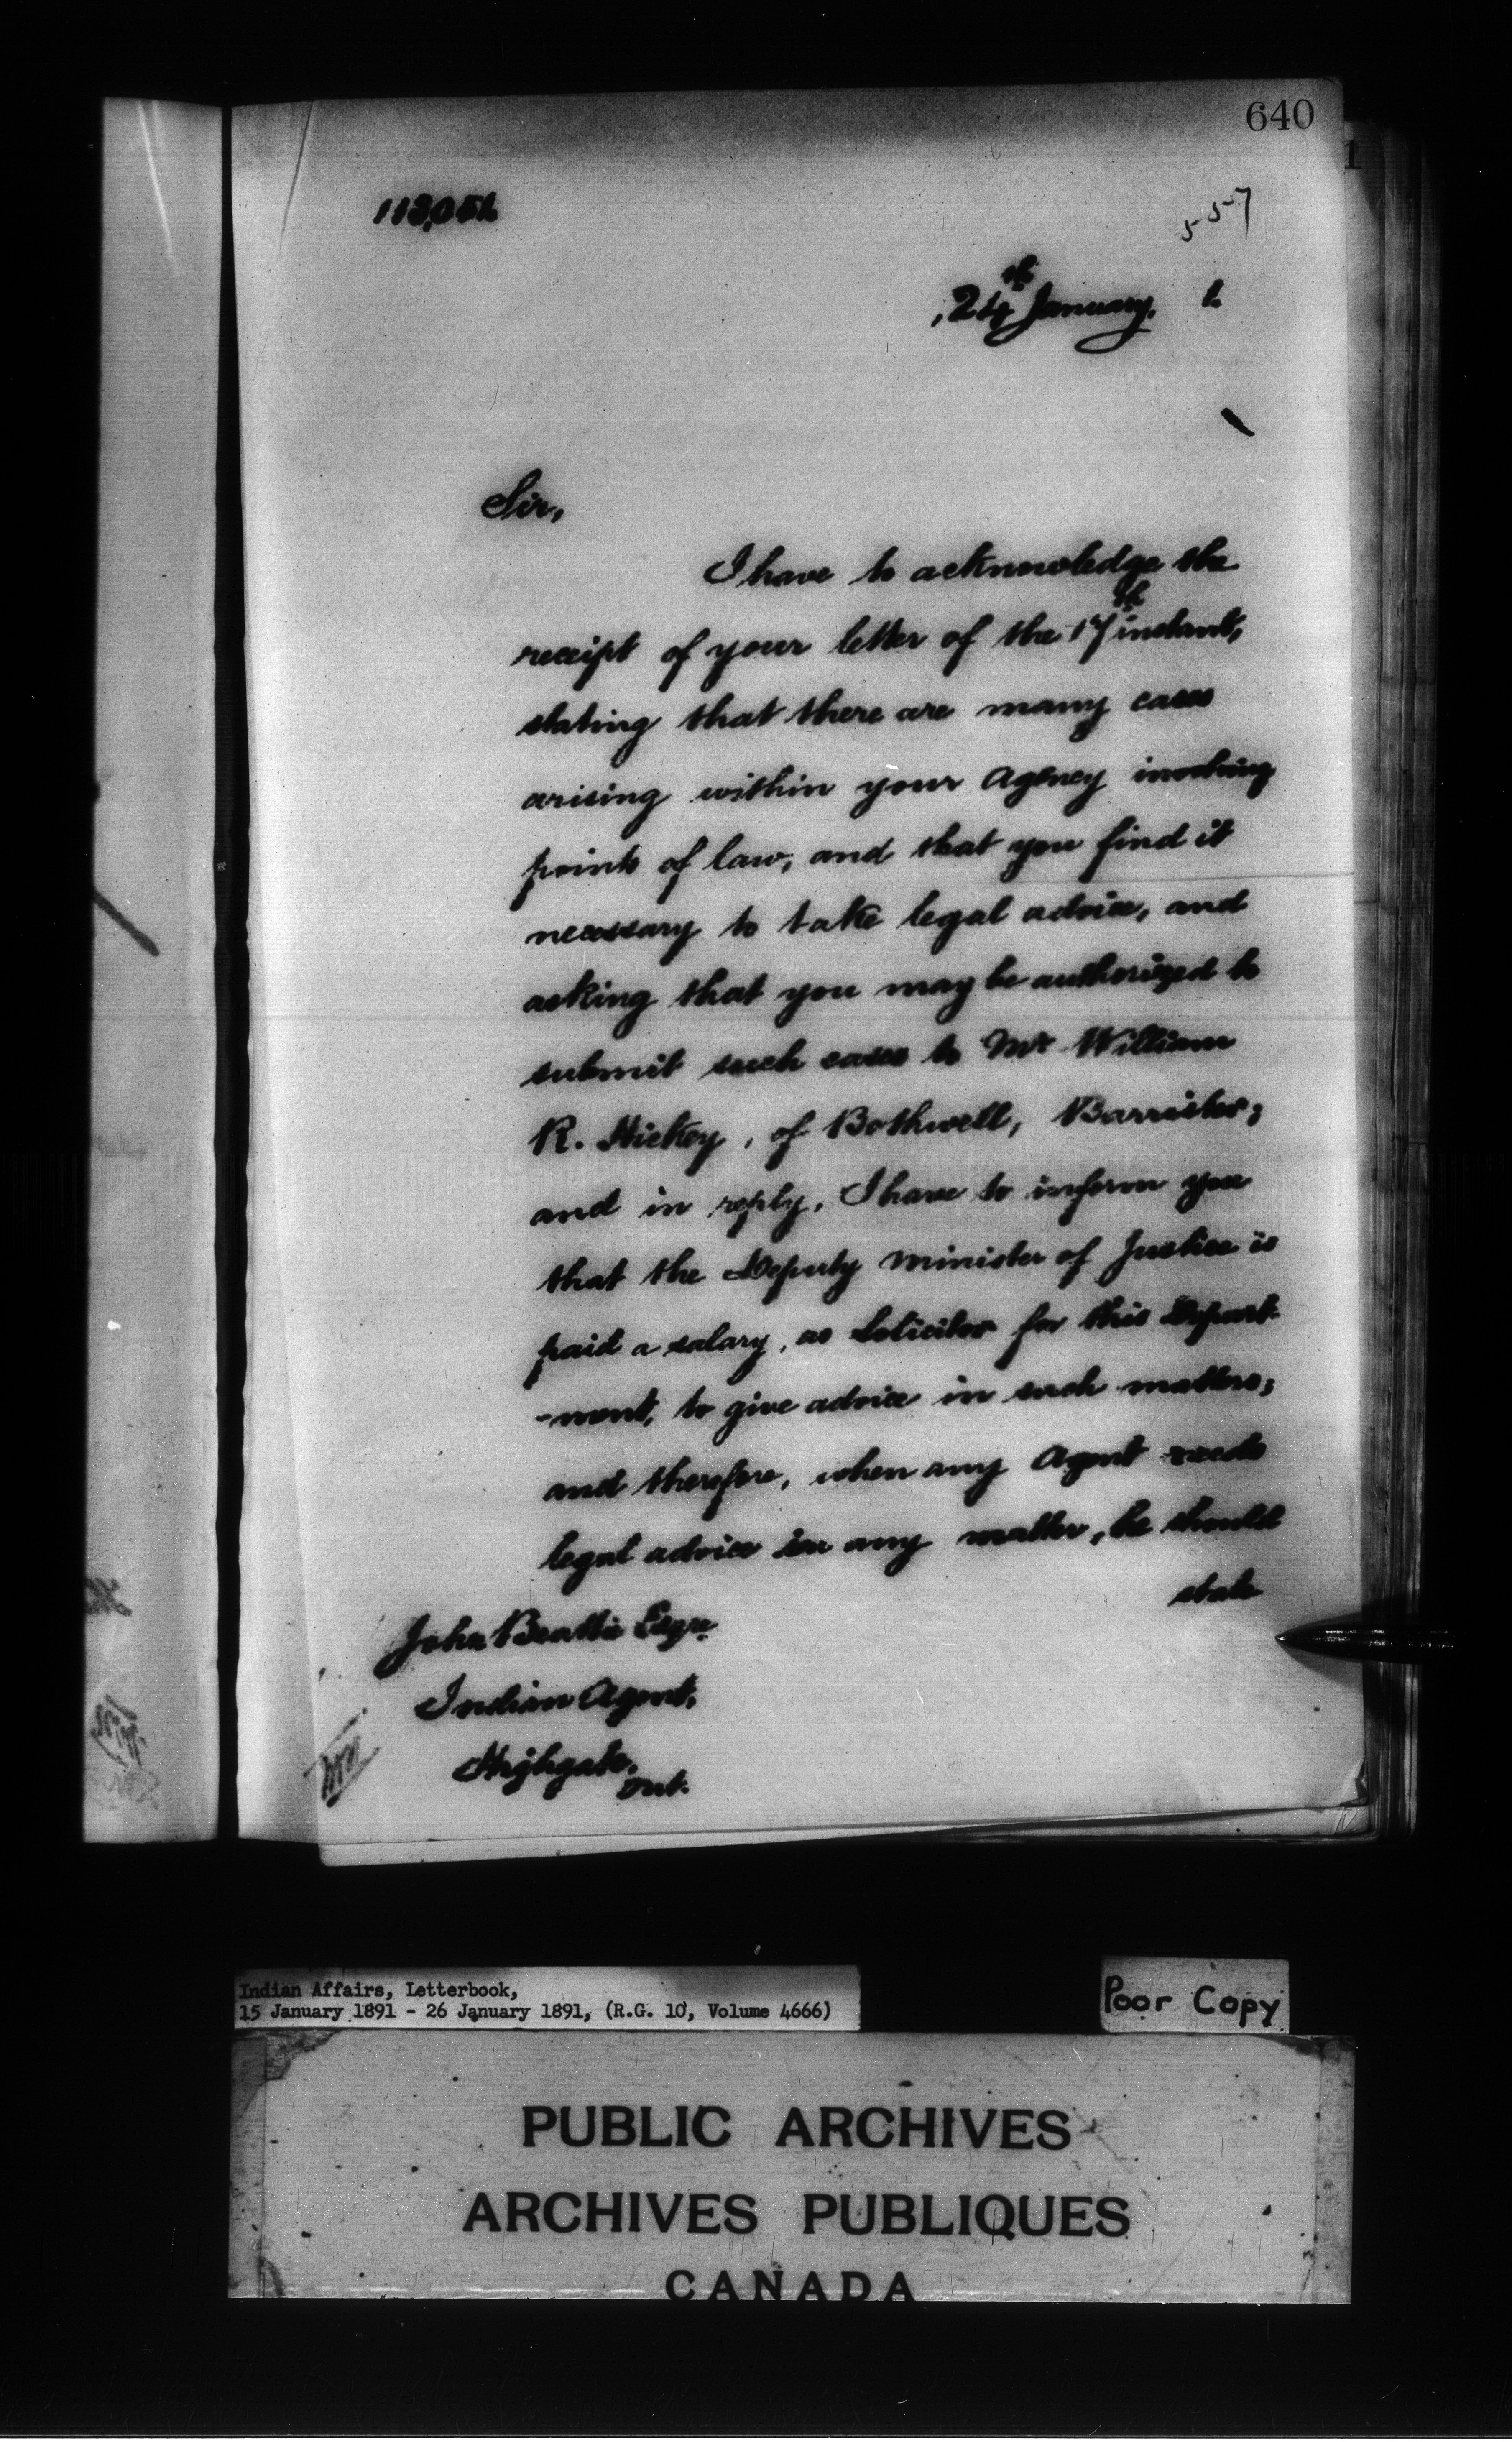 640
1
113,056
557
24th January, 1.
Sir,
I have to acknowledge the
receipt of your letter of the 17th instant,
stating that there are many cases
arising within your Agency involving
points of law, and that you find it
necessary to take legal advice, and
asking that you may be authorized to
submit such cases to Mr William
R. Hickey, of Bothwell, Barrister;
and in reply, I have to inform you
that the Deputy Minister of Justice is
paid a salary, as Solicitor for this Depart-
-ment, to give advice in such matters;
and therefore, when any Agent needs
legal advice in any matter, he should
state
John Beattie Esqre
Indian Agent,
Highgate,
Ont.
Indian Affairs, Letterbook,
15 January 1891 - 26 January 1891, (R.G. 10, Volume 4666)
Poor Copy
PUBLIC ARCHIVES
ARCHIVES PUBLIQUES
CANADA